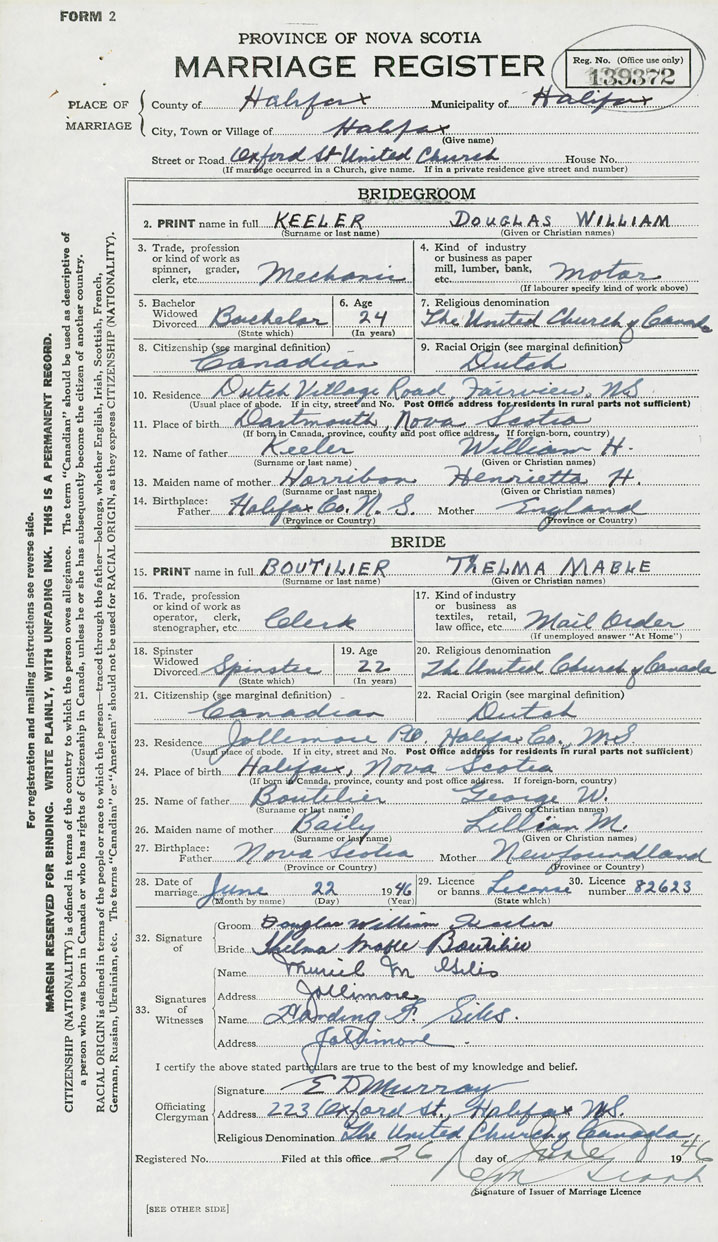 FORM 2
PROVINCE OF NOVA SCOTIA
MARRIAGE REGISTER
Reg. No. (Office use only)
139372
PLACE OF MARRIAGE
County of Halifax Municipality of Halifax
City, Town or Village of Halifax
(Give name)
Street or Road Oxford St United Church House No.
(If marriage occurred in a Church, give name. If in a private residence give street and number)
BRIDEGROOM
2. PRINT name in full KEELER DOUGLAS WILLIAM
(Surname or last name) (Given or Christian names)
3. Trade, profession or kind of work as spinner, grader, clerk, etc. Mechanic
4. Kind of industry or business as paper mill, lumber, bank, etc. Motor
(If labourer specify kind of work above)
5. Bachelor Widowed Divorced Bachelor
(State which)
6. Age 24
(In years)
7. Religious denomination
The United Church of Canada
8. Citizenship (see marginal definition)
Canadian
9. Racial Origin (see marginal definition)
Dutch
10. Residence Dutch Village Road, Fairview, NS
(Usual place of abode. If in city, street and No. Post Office address for residents in rural parts not sufficient)
11. Place of birth Dartmouth, Nova Scotia
(If born in Canada, province, county and post office address. If foreign-born, country)
12. Name of father Keeler William H.
(Surname or last name) (Given or Christian names)
13. Maiden name of mother Henrietta H.
(Surname or last name) (Given or Christian names)
14. Birthplace: Father Halifax Co. N.S. Mother England
(Province or Country) (Province or Country)
BRIDE
15. PRINT name in full BOUTILIER THELMA MABLE
(Surname or last name) (Given or Christian names)
16. Trade, profession or kind of work as operator, clerk, stenographer, etc Clerk
17. Kind of industry or business as textiles, retail, law office, etc. Mail Order
(If unemployed answer "At Home")
18. Spinster Widowed Divorced Spinster
(State which)
19. Age 22
(In years)
20. Religious denomination
The United Church of Canada
21. Citizenship (see marginal definition)
Canadian
22. Racial Origin (see marginal definition)
Dutch
23. Residence Jollimore P.O. Halifax Co., N.S
(Usual place of abode. If in city, street and No. Post Office address for residents in rural parts not sufficient)
24. Place of birth Halifax, Nova Scotia
(If born in Canada, province, county and post office address. If foreign-born, country)
25. Name of father Boutilier George W.
(Surname or last name) (Given or Christian names)
26. Maiden name of mother Baily Lillian M.
(Surname or last name) (Given or Christian names)
27. Birthplace: Father Nova Scotia Mother Newfoundland
(Province or Country) (Province or Country)
28. Date of marriage June 22 1946
(Month by name) (Day) (Year)
29. Licence or banns License
(State which)
30. Licence number 82623
32. Signature of
Groom Douglas William Keeler
Bride Thelma Mable Boutilier
33. Signatures of Witnesses
Name Muriel M Giles
Address Jollimore
Name Harding F. Giles.
Address Jollimore
I certify the above stated particulars are true to the best of my knowledge and belief.
Officiating Clergyman
Signature E D Murray
Address 223 Oxford St., Halifax N.S.
Religious Denomination The United Church of Canada
Registered No. Filed at this office 26 day of June 1946
Signature of Issuer of Marriage Licence
[SEE OTHER SIDE]
For registration and mailing instructions see reverse side.
MARGIN RESERVED FOR BINDING. WRITE PLAINLY, WITH UNFADING INK. THIS IS A PERMANENT RECORD.
CITIZENSHIP (NATIONALITY) is defined in terms of the country to which the person owes allegiance. The term "Canadian" should be used as descriptive of
a person who was born in Canada or who has rights of Citizenship in Canada, unless he or she has subsequently become the citizen of another country.
RACIAL ORIGIN is defined in terms of the people or race to which the person—traced through the father—belongs, whether English, Irish, Scottish, French,
German, Russian, Ukrainian, etc. The terms "Canadian" or "American" should not be used for RACIAL ORIGIN, as they express CITIZENSHIP (NATIONALITY).